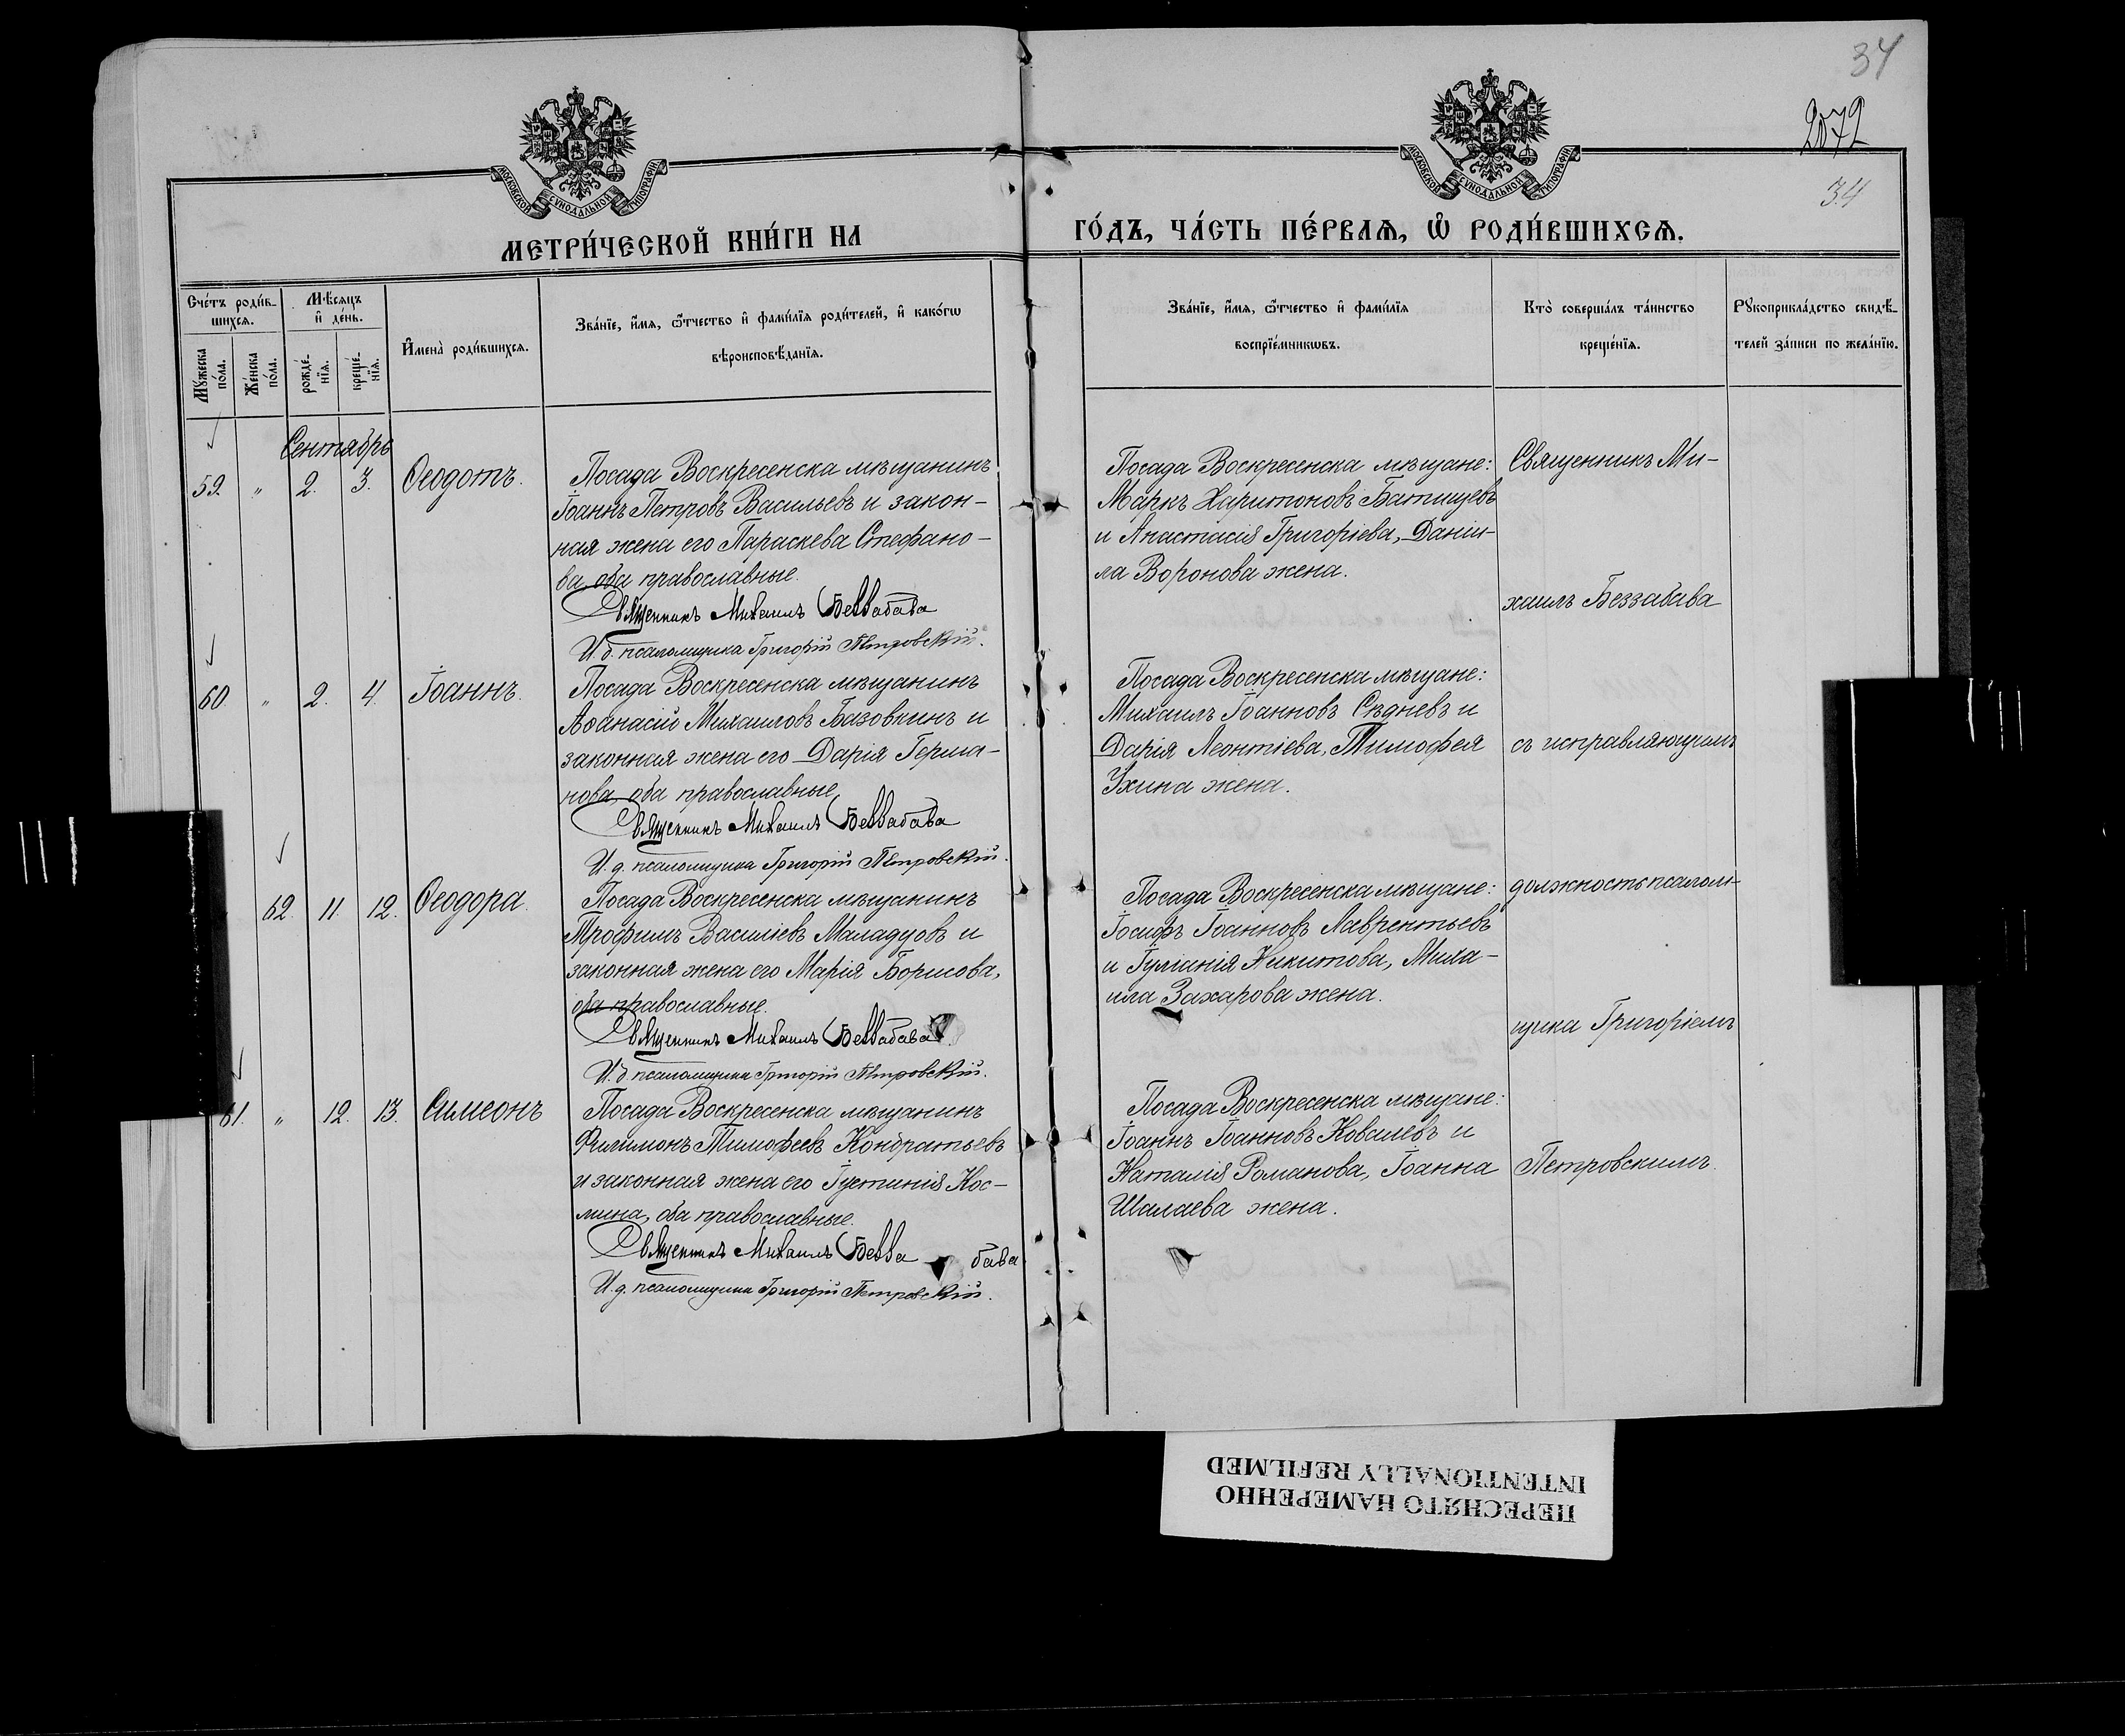 34
2072
34
МОСКОВСКОЙ СѴНОДАЛЬНОЙ ТИПОГРАФІИ
МОСКОВСКОЙ СѴНОДАЛЬНОЙ ТИПОГРАФІИ
МЕТРИ́ЧЕСКОЙ КНИ́ГИ НА
ГО́ДЪ, ЧА́СТЬ ПЕ́РВАѦ, Ѽ РОДИ́ВШИХСѦ.
Сче́тъ роди́в-
шихсѧ.
Мꙋ́жеска
по́ла.
Же́нска
по́ла.
Мѣ́сѧцъ
и҆ де́нь.
рожде́-
нїѧ.
креще́-
нїѧ.
И҆мена̀ роди́вшихсѧ.
Зва́нїе, и҆́мѧ, ѻ҆́тчество и҆ фами́лїѧ роди́телей, и҆ како́гѡ
вѣроисповѣ́данїѧ.
Зва́нїе, и҆́мѧ, ѻ҆́тчество и҆ фами́лїѧ
воспрїе́мникѡвъ.
Кто̀ соверша́лъ та́инство
креще́нїѧ.
Рꙋкоприкла́дство свидѣ́-
телей за́писи по жела́нїю.
Сентябрь
59. " 2. 3. Ѳеодотъ.
Посада Воскресенска мѣщанинъ
Іоаннъ Петровъ Васильевъ и закон-
ная жена его Параскева Стефано-
ва, оба православные.
Священникъ Михаилъ Беззабава
И. д. псаломщика Григорій Петровскій.
Посада Воскресенска мѣщане:
Маркъ Харитоновъ Батищевъ
и Анастасія Григоріева, Даніи-
ла Воронова жена.
Священникъ Ми-
хаилъ Беззабава
60. " 2. 4. Іоаннъ.
Посада Воскресенска мѣщанинъ
Аѳанасій Михаиловъ Базовкинъ и
законная жена его Дарія Герма-
нова, оба православные
Священникъ Михаилъ Беззабава
И. д. псаломщика Григорій Петровскій.
Посада Воскресенска мѣщане:
Михаилъ Іоанновъ Сѣдневъ и
Дарія Леонтіева, Тимофея
Ухина жена.
съ исправляющимъ
62. 11. 12. Ѳеодора.
Посада Воскресенска мѣщанинъ
Трофимъ Василіевъ Маладуовъ и
законная жена его Марія Борисова,
оба православные.
Священникъ Михаилъ Беззабава
И. д. псаломщика Григорій Петровскій.
Посада Воскресенска мѣщане:
Іосифъ Іоанновъ Лаврентьевъ
и Іуліанія Никитова, Миха-
ила Захарова жена.
должность псалом-
щика Григоріемъ
61. " 12. 13. Симеонъ
Посада Воскресенска мѣщанинъ
Филимонъ Тимофеевъ Кондратьевъ
и законная жена его Іустинія Кос-
мина, оба православные.
Священникъ Михаилъ Безза бава
И. д. псаломщика Григорій Петровскій.
Посада Воскресенска мѣщане:
Іоаннъ Іоанновъ Ковалевъ и
Наталія Романова, Іоанна
Шалаева жена.
Петровскимъ.
ПЕРЕСНЯТО НАМЕРЕННО
INTENTIONALLY REFILMED